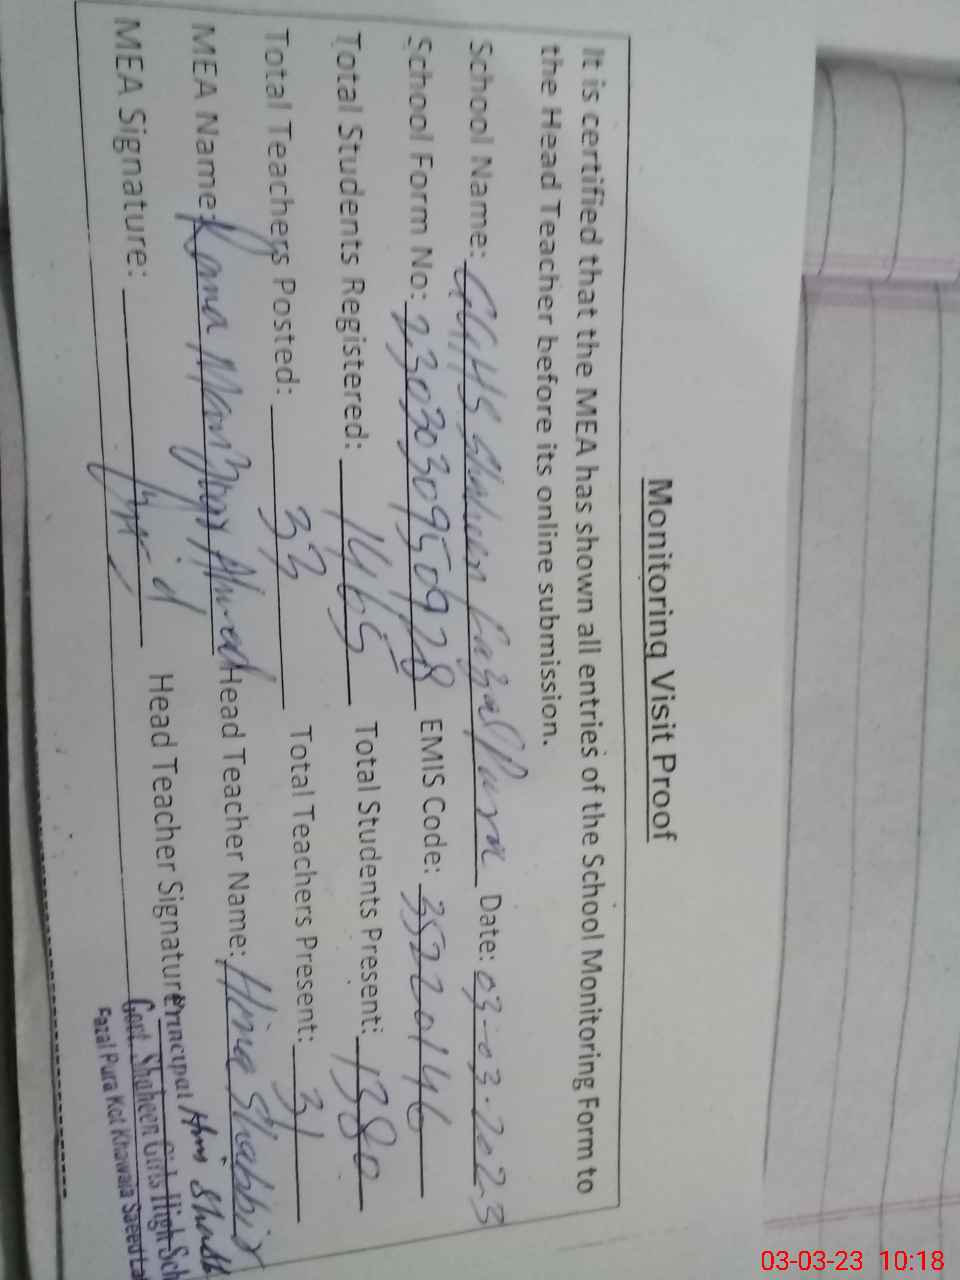 Monitoring Visit Proof
It is certified that the MEA has shown all entries of the School Monitoring Form to
the Head Teacher before its online submission.
School Name: GGHS Shaheen Fazal Pura Date: 03-03-2023
School Form No: 23030950928 EMIS Code: 35220146
Total Students Registered: 1465 Total Students Present: 1380
Total Teachers Posted: 33 Total Teachers Present: 31
MEA Name: Rana Ahmed Head Teacher Name: Hina Shabbir
MEA Signature: Head Teacher Signature
Principal
Govt. Shaheen Girls High Sch
Fazal Pura Kot Khawaja Saeed La
03-03-23 10:18